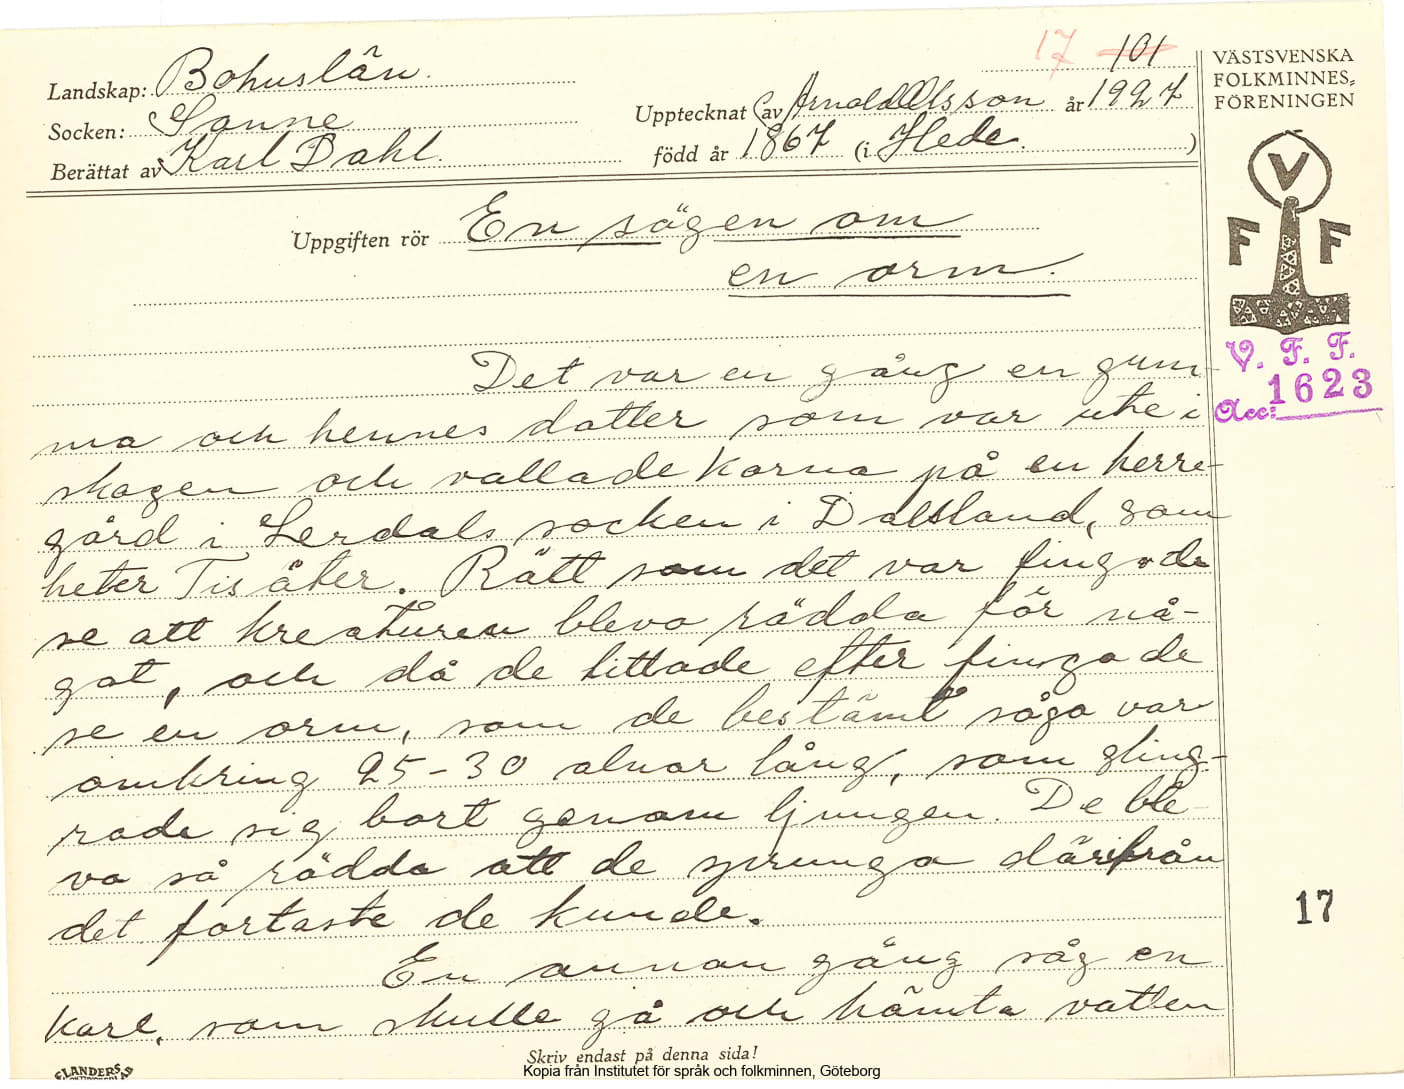 Landskap: Bohuslän.
Socken: Sanne
Berättat av Karl Dahl.
17 101
Upptecknat av Arnold Olsson år 1927
född år 1867 (i Hede. )
VÄSTSVENSKA
FOLKMINNES-
FÖRENINGEN
V
F F
V. F. F.
Acc: 1623
Uppgiften rör En sägen om
en orm.
Det var en gång en gum-
ma och hennes dotter som var ute i
skogen och vallade korna på en herre-
gård i Lerdals socken i Dalsland, som
heter Tisåter. Rätt som det var fingo de
se att kreaturen blevo rädda för nå-
got, och då de tittade efter fingo de
se en orm, som de bestämt sågo var
omkring 25-30 alnar lång, som sling-
rade sig bort genom ljungen. De ble-
vo så rädda att de sprungo därifrån
det fortaste de kunde.
17
En annan gång såg en
karl, som skulle gå och hämta vatten
Skriv endast på denna sida!
Kopia från Institutet för språk och folkminnen, Göteborg